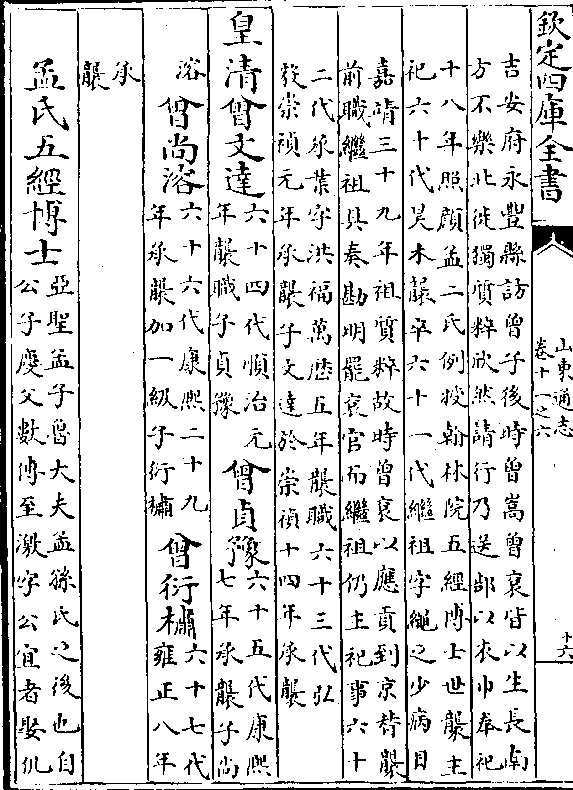 欽定四庫全書
山東通志
卷十一之六
十六
吉安府永豐縣訪曾子後時曾嵩曾衮皆以生長南
方不樂北徙獨質粹欣然請行乃送部以衣巾奉祀
十八年照顔孟二氏例授翰林院五經博士世襲主
祀六十代昊未襲卒六十一代繼祖字繩之少病目
嘉靖三十九年祖質粹故時曾衮以應貢到京替襲
前職繼祖具奏勘明罷衮官而繼祖仍主祀事六十
二代承業字洪福萬厯五年襲職六十三代弘
毅崇禎元年承襲子文達於崇禎十四年承襲
皇清曾文達六十四代順治元
年襲職子貞豫
曾貞豫六十五代康熙
七年承襲子尚
溶
曾尚溶六十六代康熙二十九
年承襲加一級子衍橚
曾衍橚六十七代
雍正八年
承
襲
孟氏五經博士亞聖孟子魯大夫孟孫氏之後也自
公子慶父數傳至激字公宜者娶仉